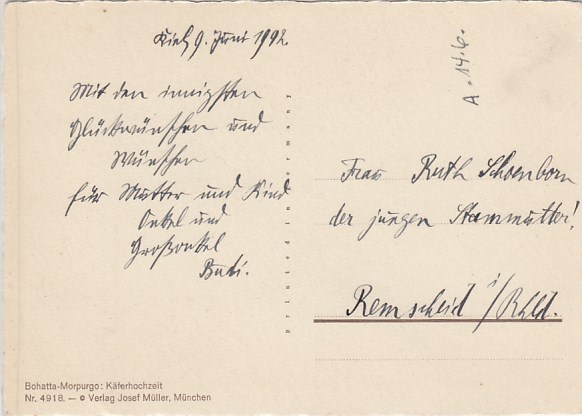 Kiel, 9. Juni 1942.
Mit den innigsten
Glückwünschen und
Wünschen
für Mutter und Kind
Onkel und
Großonkel
Rudi.
A. 14.6.
Frau Ruth Schoenborn
der jungen Stammutter!
Remscheid i/Rhld.
printed in germany
Bohatta-Morpurgo: Käferhochzeit
Nr. 4918. — © Verlag Josef Müller, München